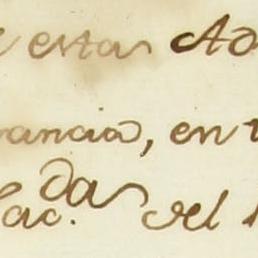 e estas Ad
rancia, en t
fac.da del